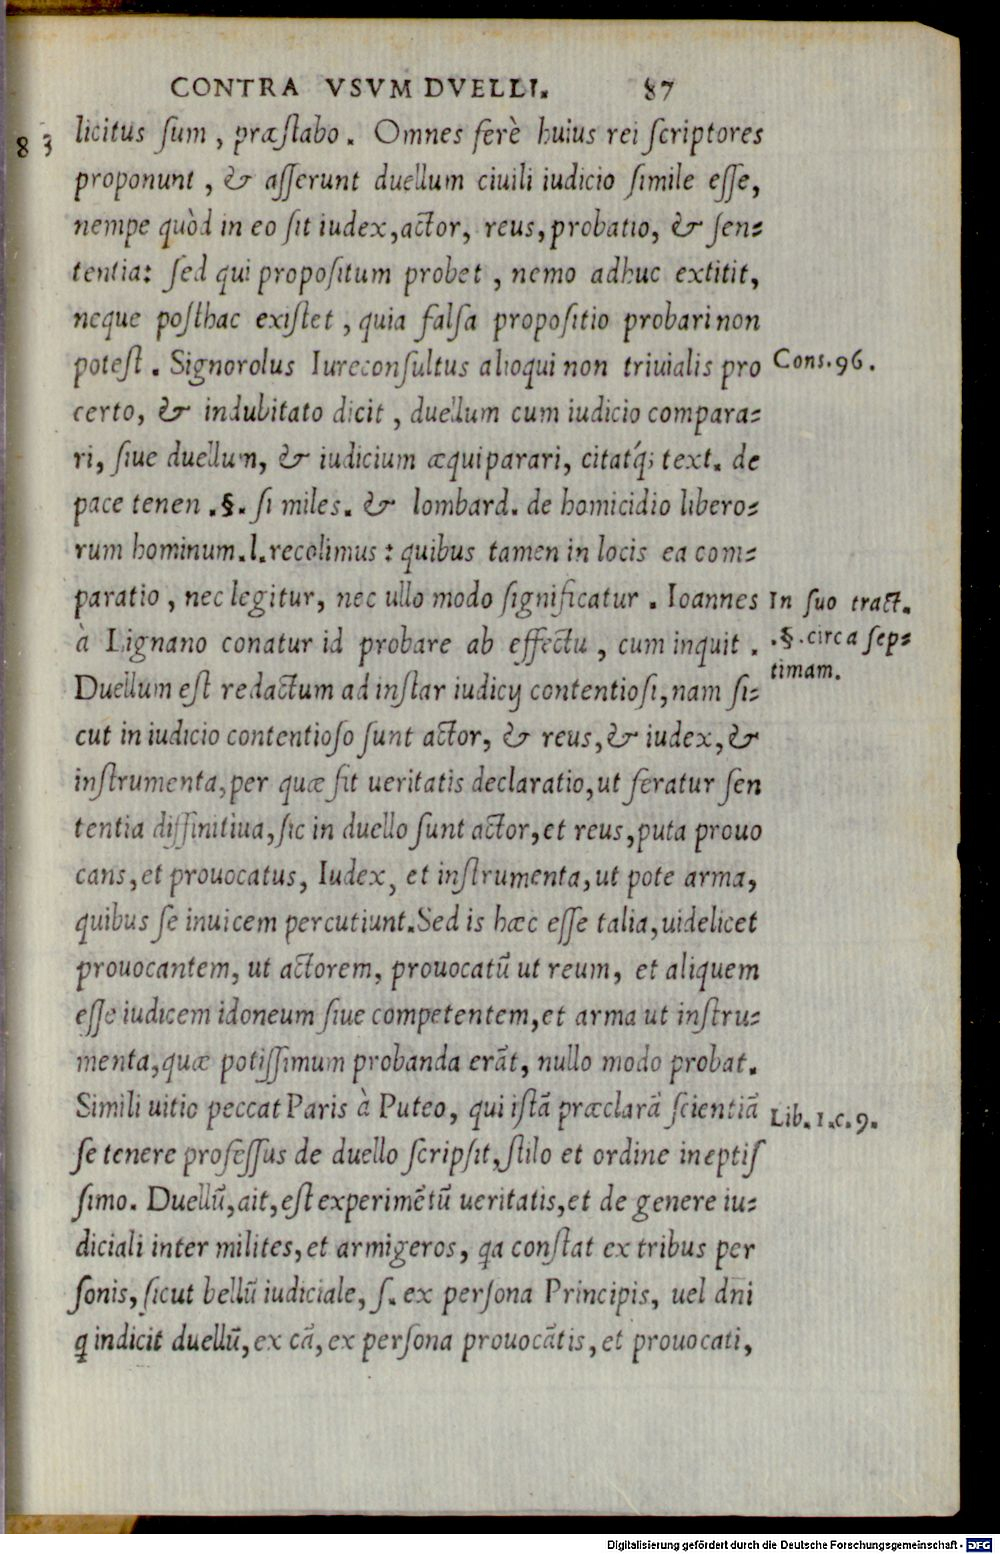 CONTRA VSVM DVELLI. 87
83 licitus ſum, præſtabo. Omnes ferè huius rei ſcriptores
proponunt, & aſſerunt duellum ciuili iudicio ſimile eſſe,
nempe quòd in eo ſit iudex, actor, reus, probatio, & ſen⸗
tentia: ſed qui propoſitum probet, nemo adhuc extitit,
neque poſthac exiſtet, quia falſa propoſitio probari non
poteſt. Signorolus Iureconſultus alioqui non triuialis pro
Cons. 96.
certo, & indubitato dicit, duellum cum iudicio compara⸗
ri, ſiue duellum, & iudicium æquiparari, citatq́; text. de
pace tenen .§. ſi miles. & lombard. de homicidio libero⸗
rum hominum. l. recolimus: quibus tamen in locis ea com⸗
paratio, nec legitur, nec ullo modo ſignificatur. Ioannes
In ſuo tract.
.§. circa ſep⸗
timam.
à Lignano conatur id probare ab effectu, cum inquit.
Duellum eſt redactum ad inſtar iudicij contentioſi, nam ſi⸗
cut in iudicio contentioſo ſunt actor, & reus, & iudex, &
inſtrumenta, per quæ fit ueritatis declaratio, ut feratur ſen
tentia diffinitiua, ſic in duello ſunt actor, et reus, puta prouo
cans, et prouocatus, Iudex, et inſtrumenta, ut pote arma,
quibus ſe inuicem percutiunt. Sed is hæc eſſe talia, uidelicet
prouocantem, ut actorem, prouocatū ut reum, et aliquem
eſſe iudicem idoneum ſiue competentem, et arma ut inſtru⸗
menta, quæ potiſſimum probanda erāt, nullo modo probat.
Simili uitio peccat Paris à Puteo, qui iſtā præclarā ſcientiā
Lib. 1. c. 9.
ſe tenere profeſſus de duello ſcripſit, ſtilo et ordine ineptiſ
ſimo. Duellū, ait, eſt experimētū ueritatis, et de genere iu⸗
diciali inter milites, et armigeros, qa conſtat ex tribus per
ſonis, ſicut bellū iudiciale, ſ. ex perſona Principis, uel dn̄i
q indicit duellū, ex cā, ex perſona prouocātis, et prouocati,
Digitalisierung gefördert durch die Deutsche Forschungsgemeinschaft - DFG